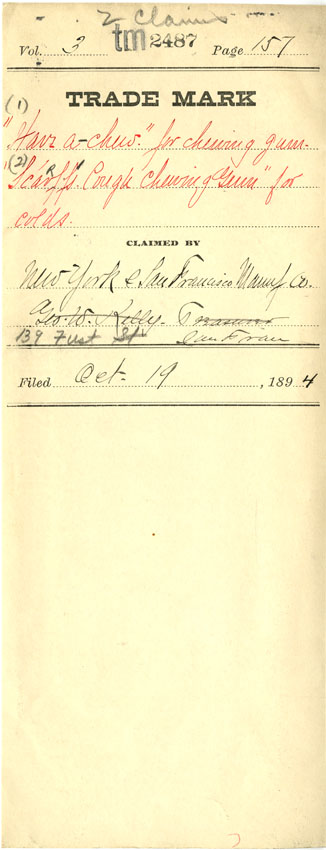 2 Claims
Vol. 3 tm 2487 Page 157
TRADE MARK
(1)
"Have a-chew." for chewing gum.
(2) "Scarff's Cough Chewing Gum" for
colds.
CLAIMED BY
New York & San Francisco Manuf Co.
Geo. W. Kelly. Treasurer
139 First St. San Fran
Filed Oct. 19, 1894